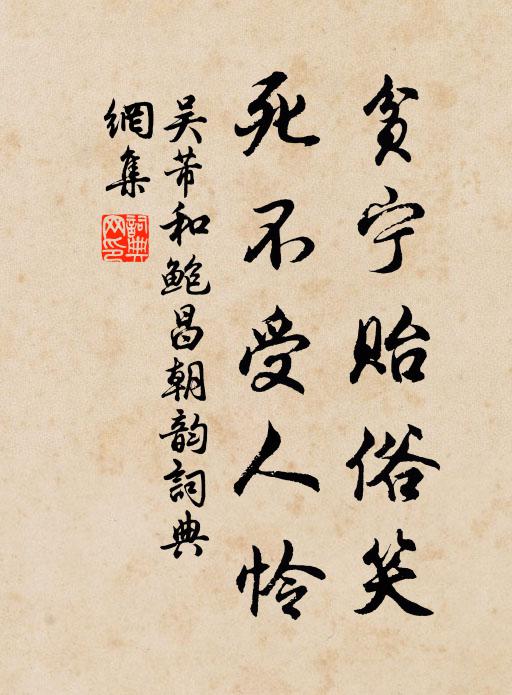 贫宁贻俗笑
死不受人怜
吴芾和鲍昌朝韵詞典
網集
詞典网印